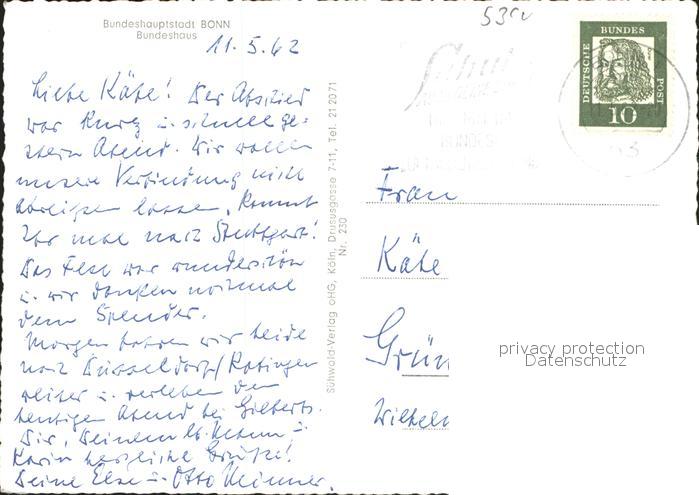 Bundeshauptstadt BONN
Bundeshaus
11.5.62
Liebe Käte! Der Abschied
war kurz u. schnell ge-
stern Abend. Wir wollen
unsere Verbindung nicht
abreißen lassen, kommt
Ihr mal nach Stuttgart!
Das Fest war wunderschön
u. wir danken nochmal
dem Spender.
Morgen fahren wir beide
nach Düsseldorf/Ratingen
weiter u. verleben den
heutigen Abend bei Gilberts.
Dir, Deinem lb. u.
Karin herzliche Grüße!
Deine Else u. Otto
Sühwold-Verlag oHG, Köln, Drususgasse 7-11, Tel. 21 20 71
Nr. 230
DEUTSCHE
BUNDES
POST
10
53
Frau
Käte
Grün
Wilhelm
privacy protection
Datenschutz